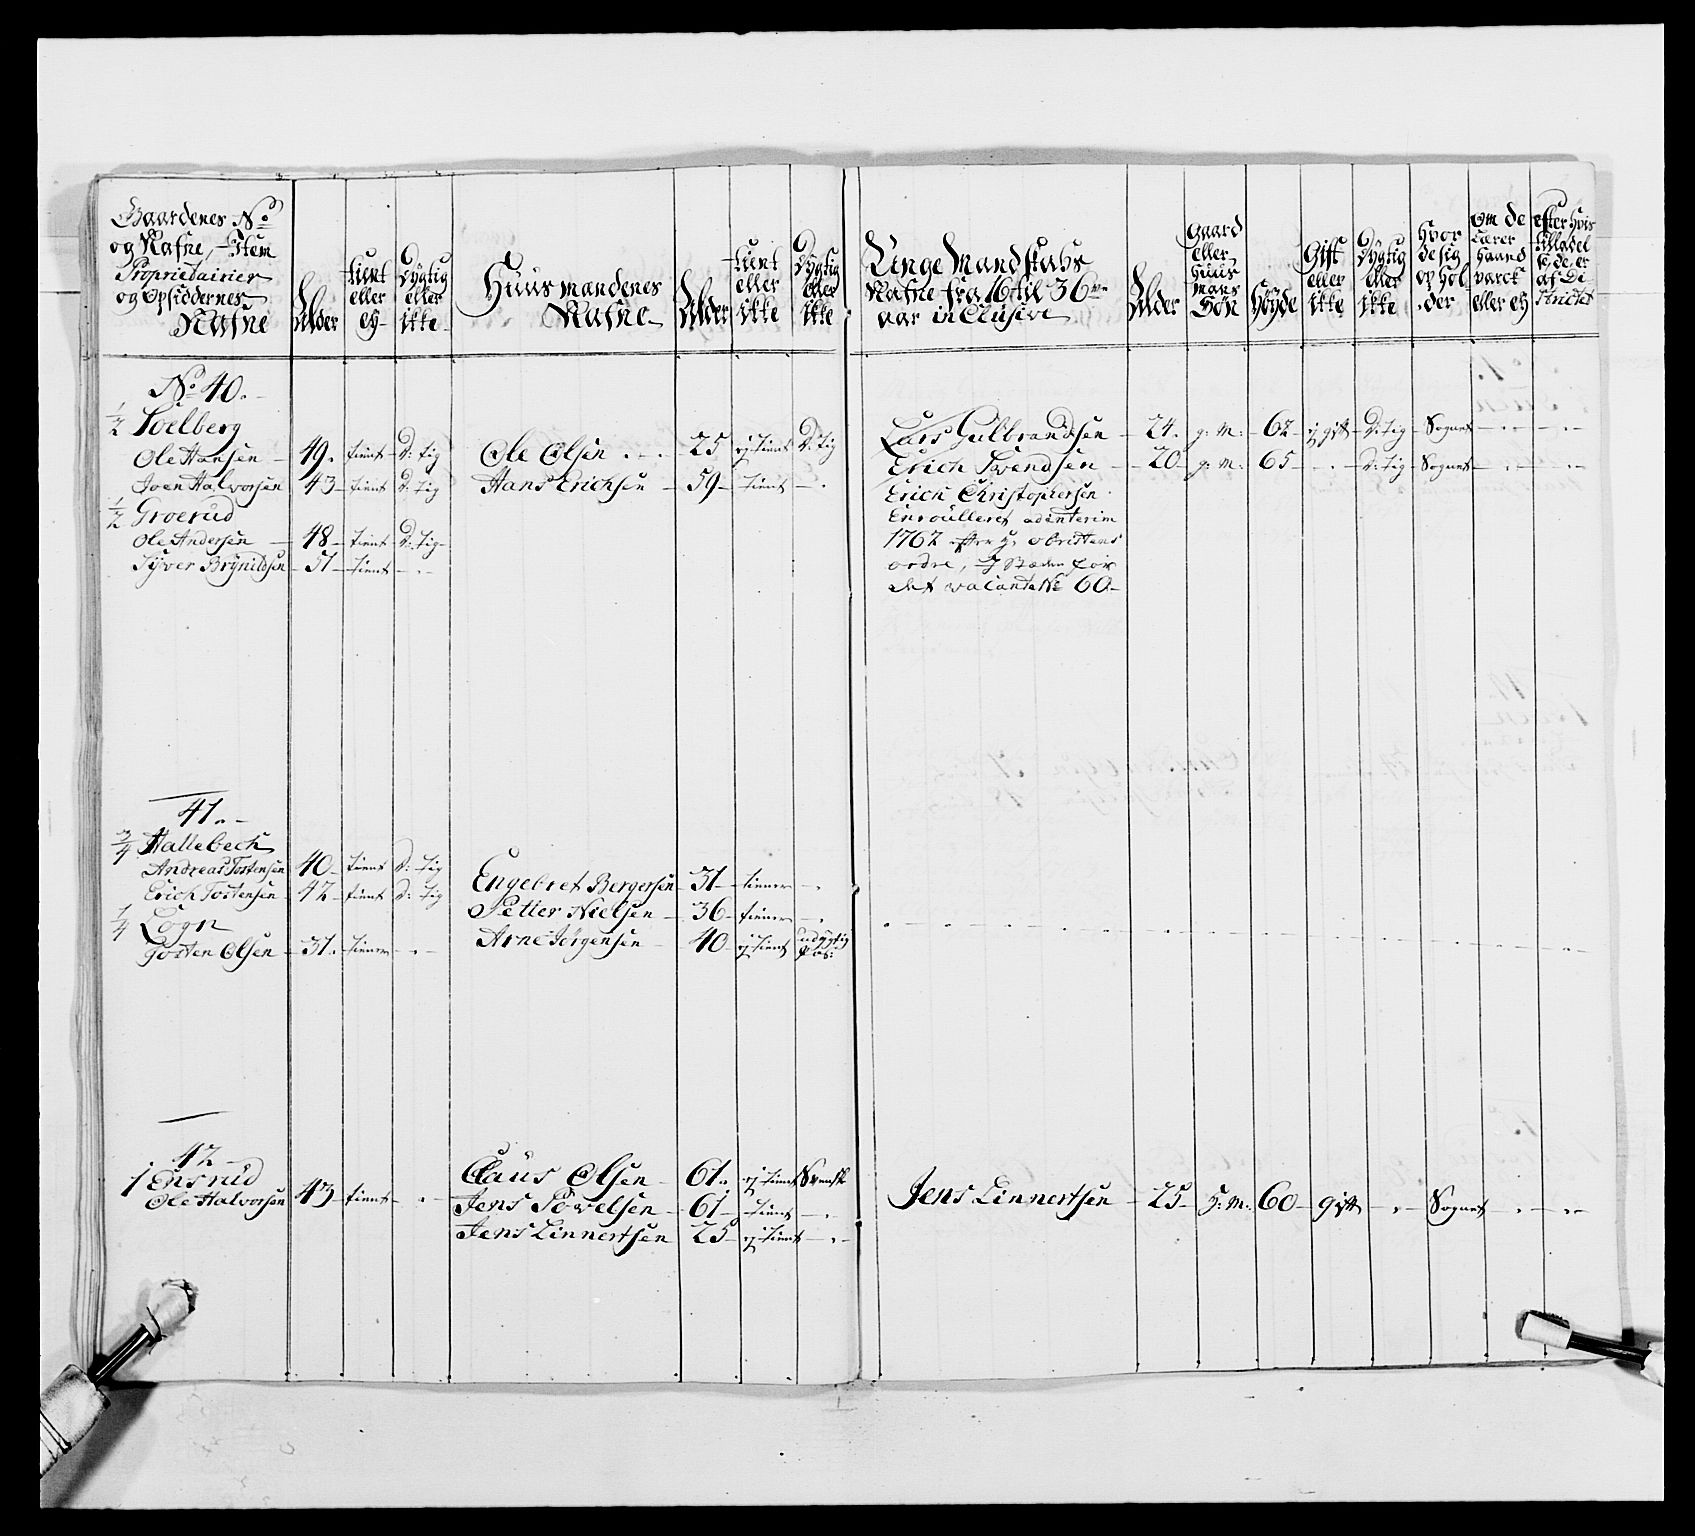 Gaardenes No
og Nafne, Item
Proprietairier
og Opsiddernes
Nafne
Alder
tient
eller
ey
Dygtig
eller
ikke
Huusmandenes
Nafne
Alder
tient
eller
ikke
Dygtig
eller
ikke
Unge Mandskabs
Nafne fra 16 til 36
aar inclusive
Alder
Gaard
eller
Huus
mans
Søn
Høyde
Gift
eller
ikke
Dygtig
eller
ikke
Hvor
de sig
ophol
der
Om de
Lærer
Haand
værck
eller ey
efter hvis
tilladel
se de er
af Di
strictet
No 40.
1/2 Soelberg
Ole Hansen 49. tient D: tig Ole Olsen 25 ej tient D: tig Lars Gulbrandsen 24. g: M: 62 ej gift D: tig Sognet
Joen Halvorsen 43 tient D: tig Hans Erichsen 59 tient Erich Svendsen 20 g: M: 65 D: tig Sognet
1/2 Groerud Erich Christophersen
Ole Andersen 48 tient D: tig Enroulleret adenterim
Syver Brynildsen 51 tient 1762 efter H: Obristens
ordre, I Stæden for
det vacante No 60
41.
3/4 Hallebech
Andreas Tostensen 40 tient D: tig Engebret Bergersen 31 tiener
Erich Tostensen 42 tient D: tig Petter Nielsen 36 tiener
1/4 Logn
Tosten Olsen 31. tiener Arne Jørgensen 40 ej tient udygtig
Pas:
42
1 Ensrud Claus Olsen 61. ej tient Svensk
Ole Halvorsen 43 tient Jens Povelsen 61 tient Jens Linnertsen 25 H: M: 60 gift Sognet
Jens Linnertsen 25 ej tient